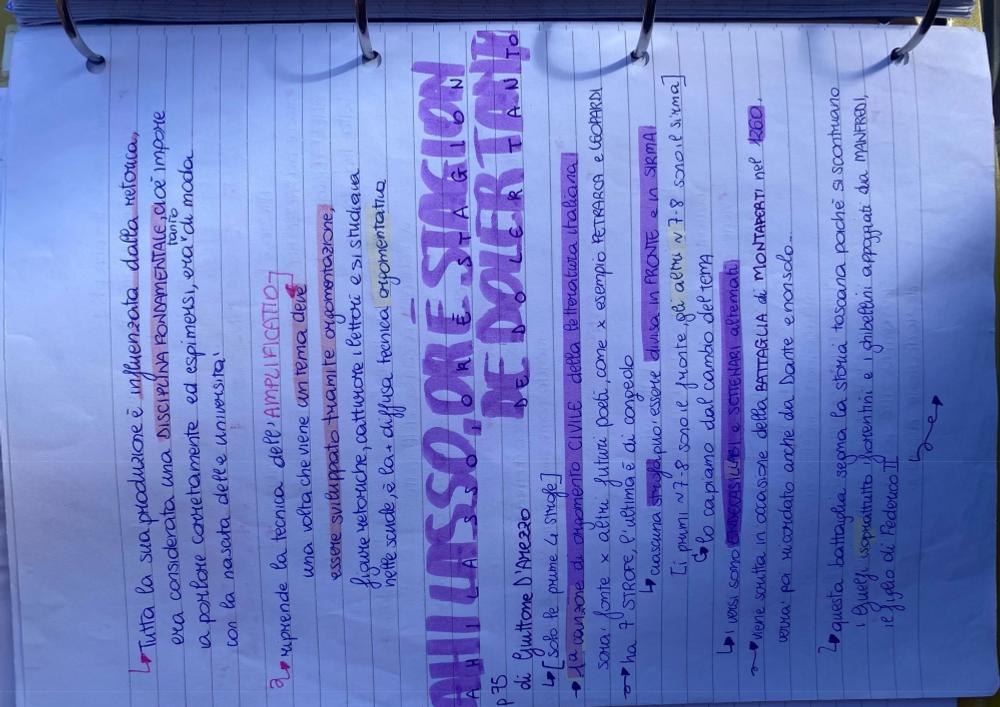 Tutta la sua produzione è influenzata dalla retorica,
era considerata una DISCIPLINA FONDAMENTALE, cioè impare
a parlare correttamente ed esprimersi, era tanto di moda
con la nascata delle università
riprende la tecnica dell'AMPLIFICATIO
una volta che viene un tema deve
essere sviluppato tramite argomentazione,
figure retoriche, catturare i lettori e si studiava
nelle scuole, è la + diffusa tecnica argomentativa
AHI LASSO, OR È STAGION
AHI LASSO OR È STAGION
DE DOLER TANT
DE DOLER TANTO
p 75
di Guittone D'Arezzo
[solo le prime 4 strofe]
1a canzone di argomento CIVILE della letteratura italiana
sarà fonte x altri futuri poeti, come x esempio PETRARCA e LEOPARDI
ha 7 STROFE, l'ultima è di congedo
ciascuna strofa può essere divisa in FRONTE e in SIRMA
[i primi 7-8 sono le fronte, gli altri 7-8 sono il sirma]
lo capiamo dal cambio del TEMA
i versi sono ENDECASILLABI e SETTENARI alternati
viene scritta in occasione della BATTAGLIA di MONTAPERTI nel 1260,
verrà poi ricordato anche da Dante e non solo...
questa battaglia segna la storia toscana poiché si scontrano
i Guelfi soprattutto fiorentini e i ghibellini appoggiati da MANFREDI,
il figlio di Federico II